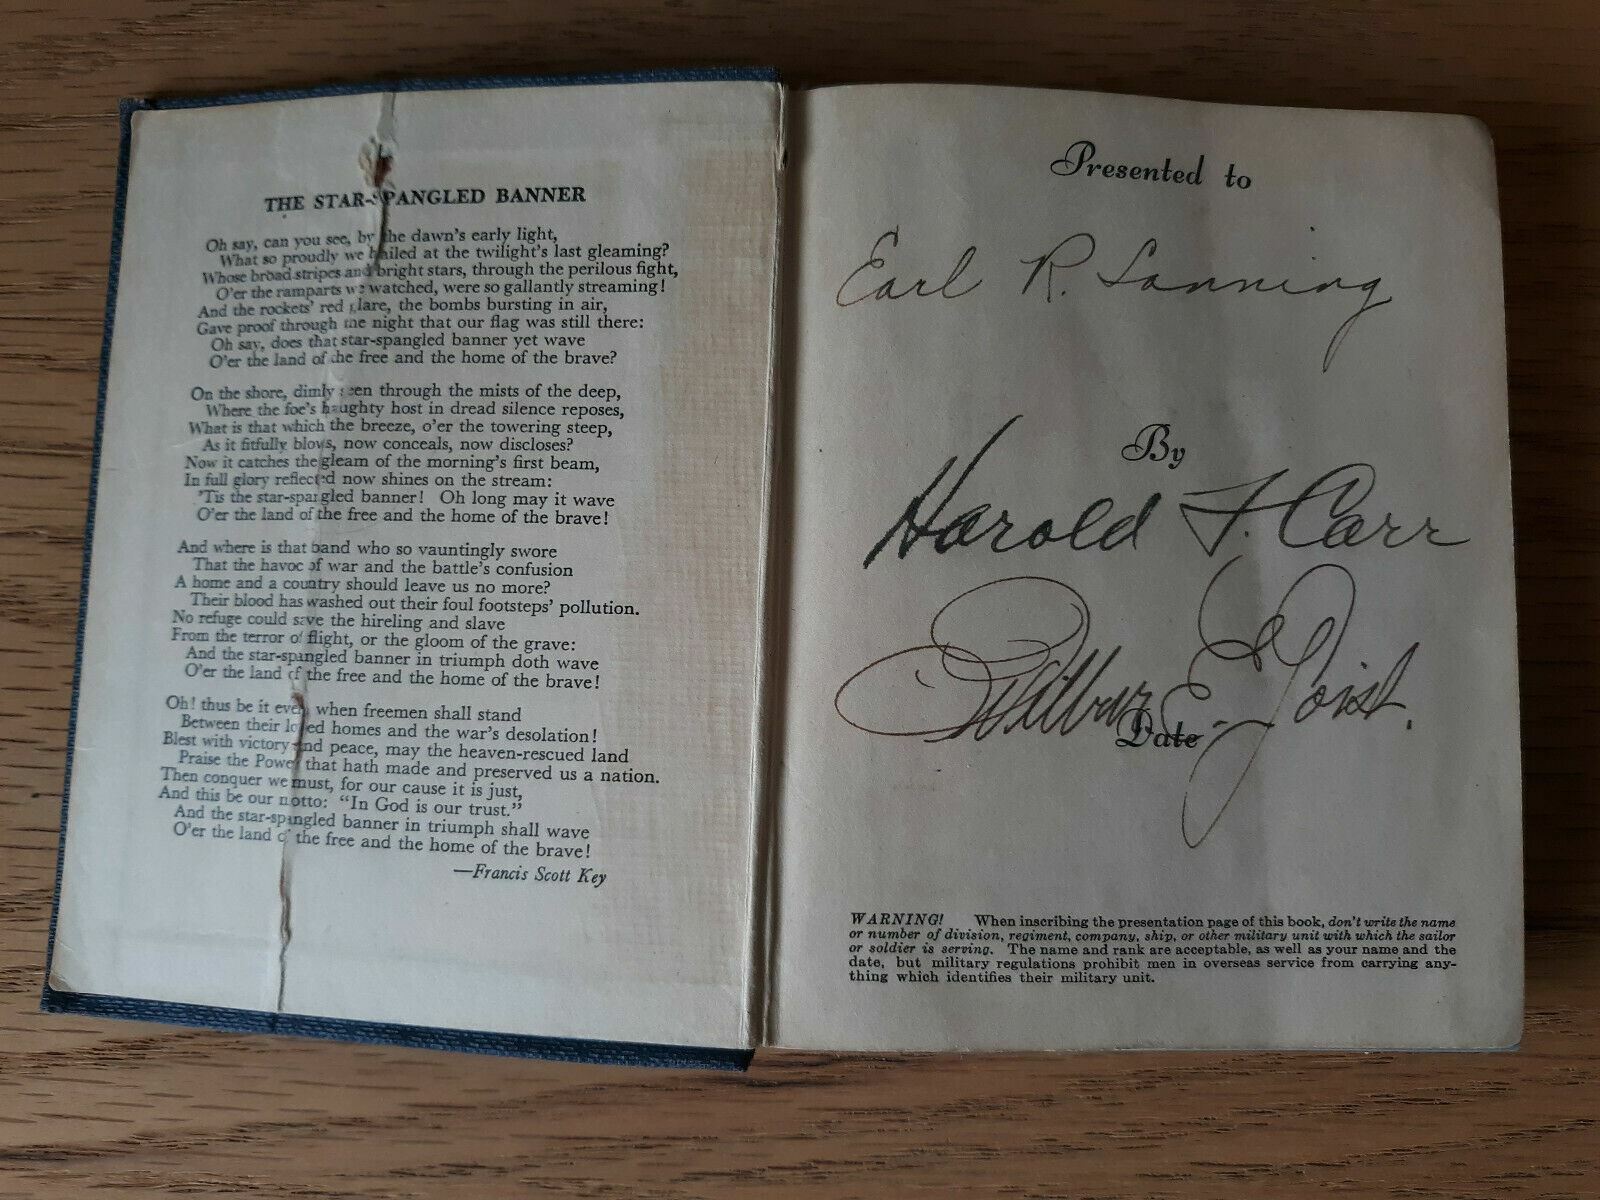 THE STAR-SPANGLED BANNER
Oh say, can you see, by the dawn's early light,
What so proudly we hailed at the twilight's last gleaming?
Whose broad stripes and bright stars, through the perilous fight,
O'er the ramparts we watched, were so gallantly streaming!
And the rockets' red glare, the bombs bursting in air,
Gave proof through the night that our flag was still there:
Oh say, does that star-spangled banner yet wave
O'er the land of the free and the home of the brave?
On the shore, dimly seen through the mists of the deep,
Where the foe's haughty host in dread silence reposes,
What is that which the breeze, o'er the towering steep,
As it fitfully blows, now conceals, now discloses?
Now it catches the gleam of the morning's first beam,
In full glory reflected now shines on the stream:
'Tis the star-spangled banner! Oh long may it wave
O'er the land of the free and the home of the brave!
And where is that band who so vauntingly swore
That the havoc of war and the battle's confusion
A home and a country should leave us no more?
Their blood has washed out their foul footsteps' pollution.
No refuge could save the hireling and slave
From the terror of flight, or the gloom of the grave:
And the star-spangled banner in triumph doth wave
O'er the land of the free and the home of the brave!
Oh! thus be it ever, when freemen shall stand
Between their loved homes and the war's desolation!
Blest with victory and peace, may the heaven-rescued land
Praise the Power that hath made and preserved us a nation.
Then conquer we must, for our cause it is just,
And this be our motto: "In God is our trust."
And the star-spangled banner in triumph shall wave
O'er the land of the free and the home of the brave!
—Francis Scott Key
Presented to
Earl R. Lanning
By
Harold F. Carr
Wilbur E. Joist.
Date
WARNING! When inscribing the presentation page of this book, don't write the name
or number of division, regiment, company, ship, or other military unit with which the sailor
or soldier is serving. The name and rank are acceptable, as well as your name and the
date, but military regulations prohibit men in overseas service from carrying any-
thing which identifies their military unit.